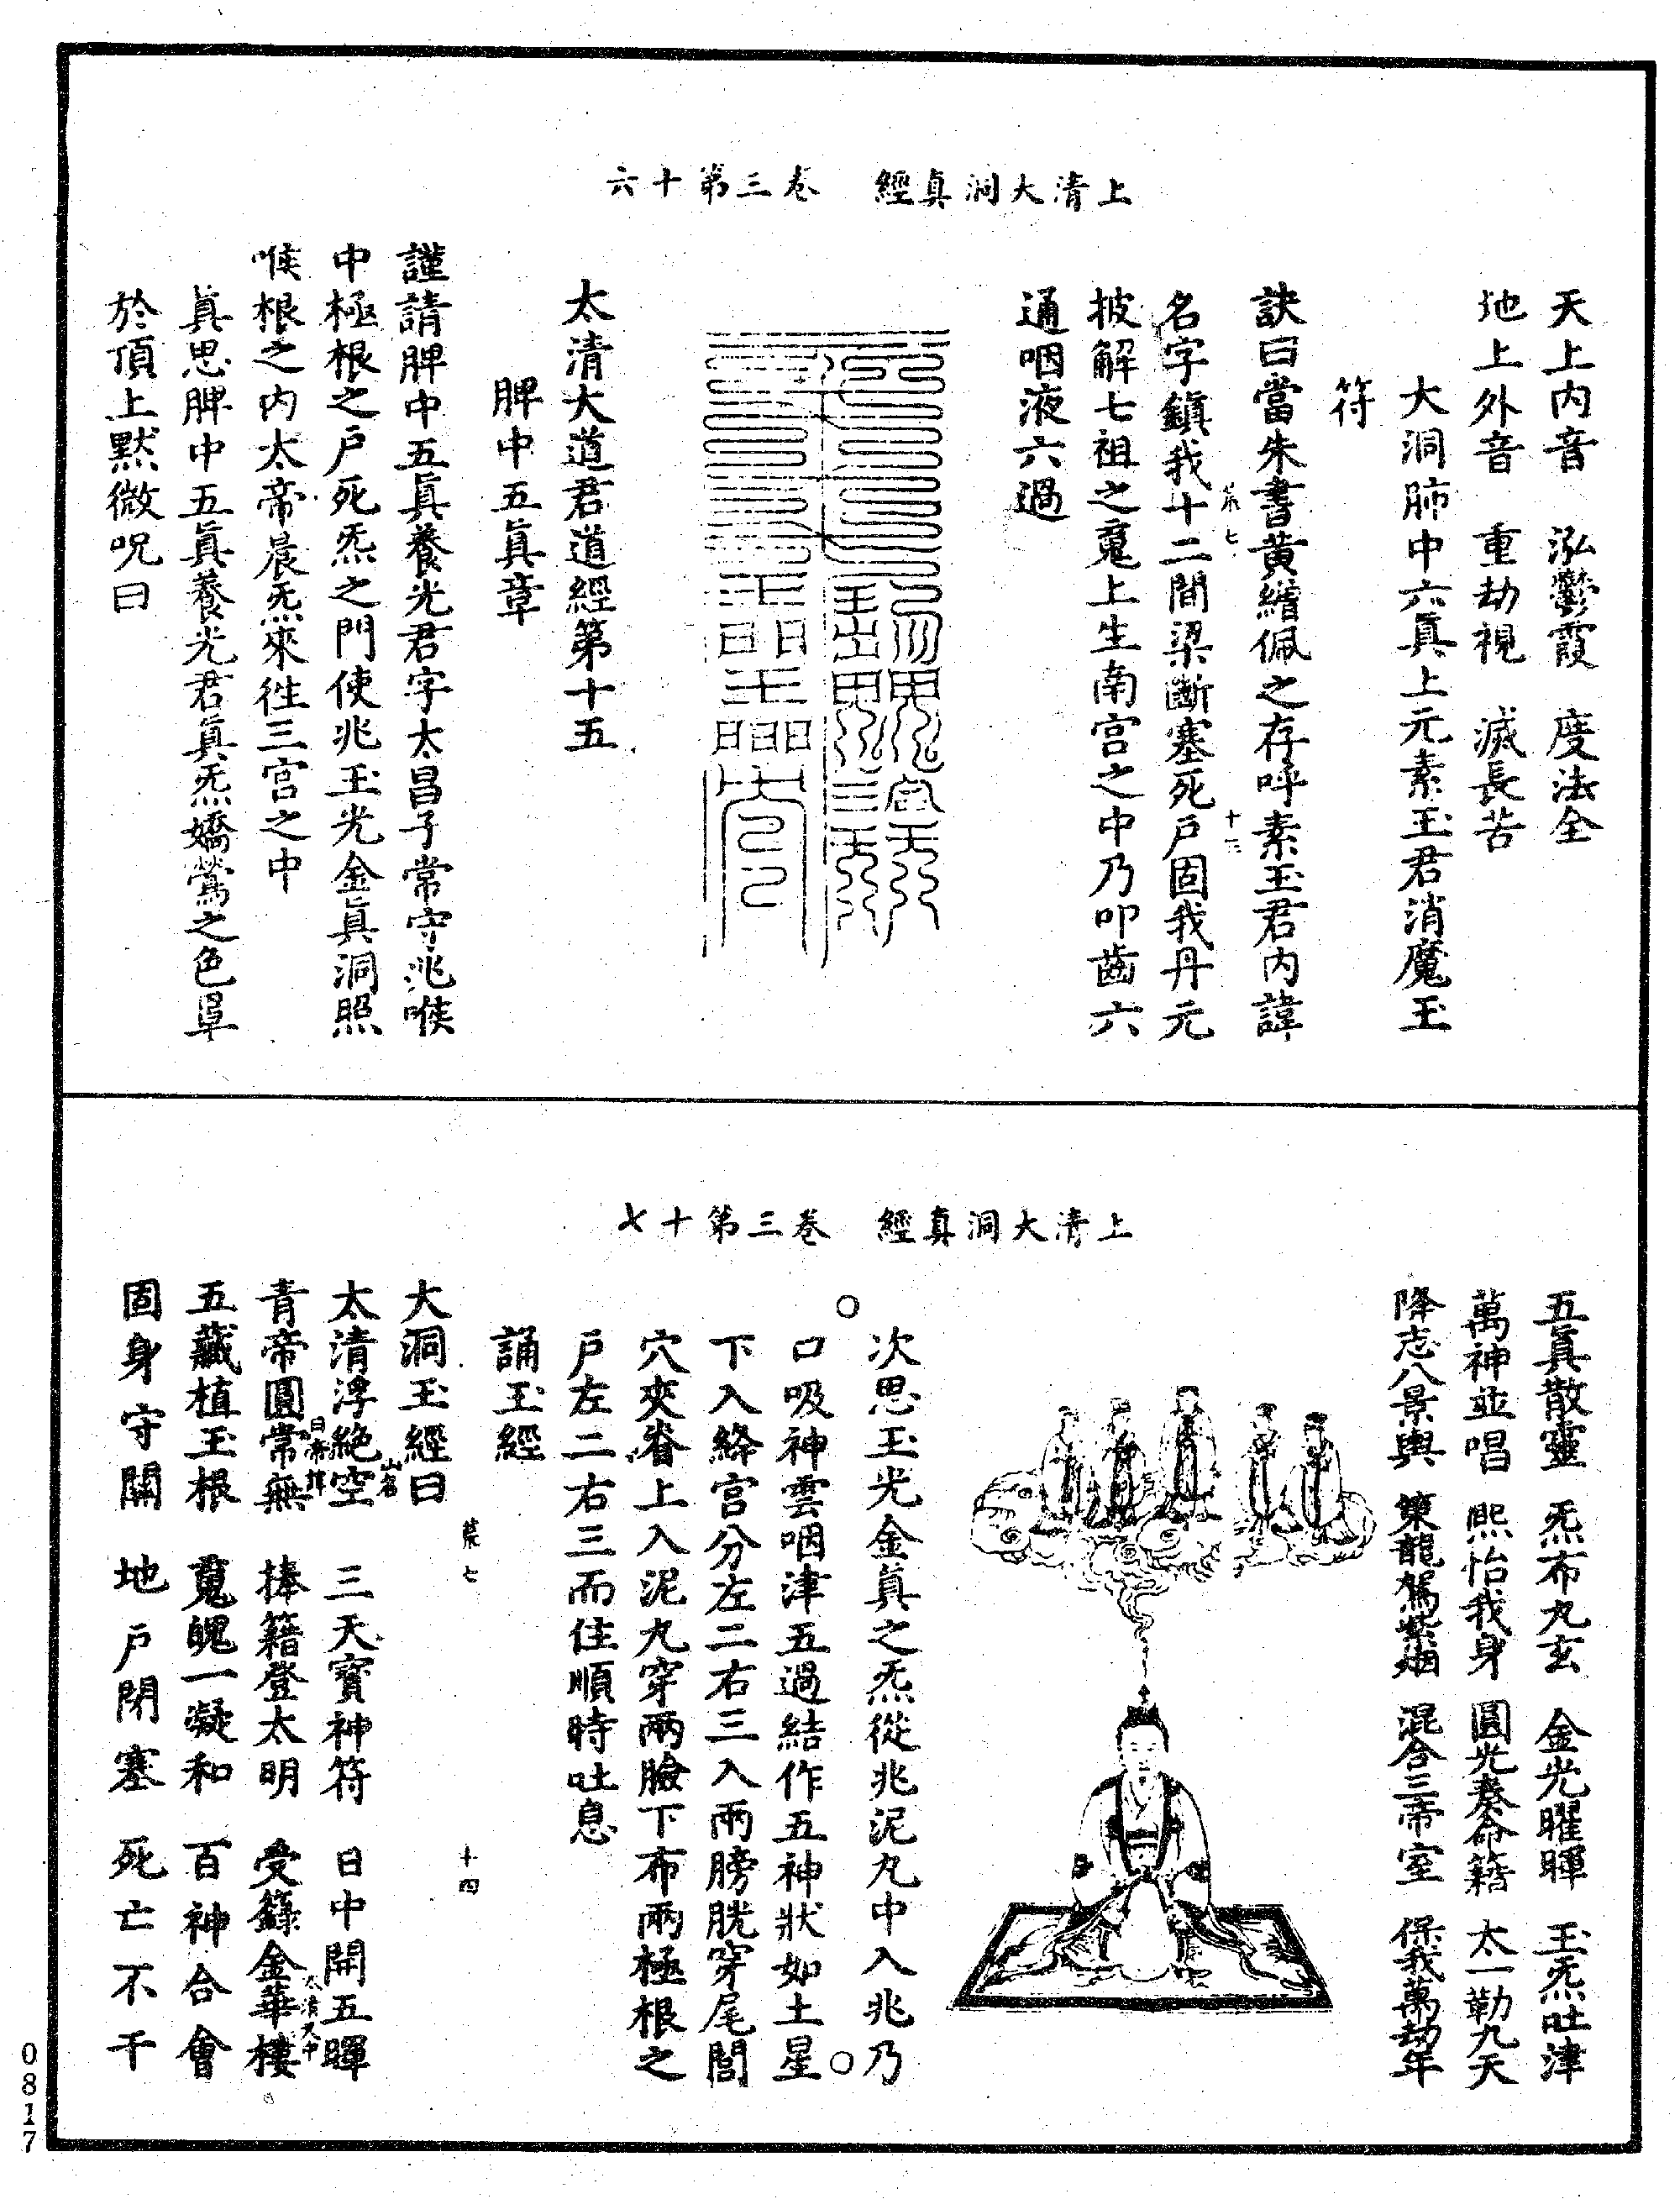 上清大洞真經　卷三第十六
天上内音　泓鬱霞　度法全
地上外音　重劫視　滅長苦
大洞肺中六真上元素玉君消魔玉
符
訣曰當朱書黄繒佩之存呼素玉君内諱
名字鎮我十二間梁斷塞死戸固我丹元
披解七祖之䰟上生南宫之中乃叩齒六
通咽液六過
太清大道君道經第十五
脾中五真章
謹請脾中五真養光君字太昌子常守兆喉
中極根之戸死炁之門使兆玉光金真洞照
喉根之内太帝晨炁來往三宫之中
真思脾中五真養光君真炁嬌鶯之色罩
於頂上默微呪曰
上清大洞真經　卷三第十七
五真散靈　炁布九玄　金光曜暉　玉炁吐津
萬神並唱　熙怡我身　圓光奏命籍　太一勒九天
降志八景輿　策龍駕紫烟　混合三帝室　保我萬劫年
次思玉光金真之炁從兆泥丸中入兆乃
口吸神雲咽津五過結作五神狀如土星
下入絳宫分左二右三入兩膀胱穿尾閭
穴夾脊上入泥丸穿兩臉下布兩極根之
戸左二右三而住順時吐息
誦玉經
十四
大洞玉經曰
太清浮絶空山名　三天寳神符　日中開五暉
青帝圓常無日帝諱　捧籍登太明　受籙金華樓太清天中
五藏植玉根　䰟魄一凝和　百神合會
固身守關　地戸閉塞　死亡不干
0817